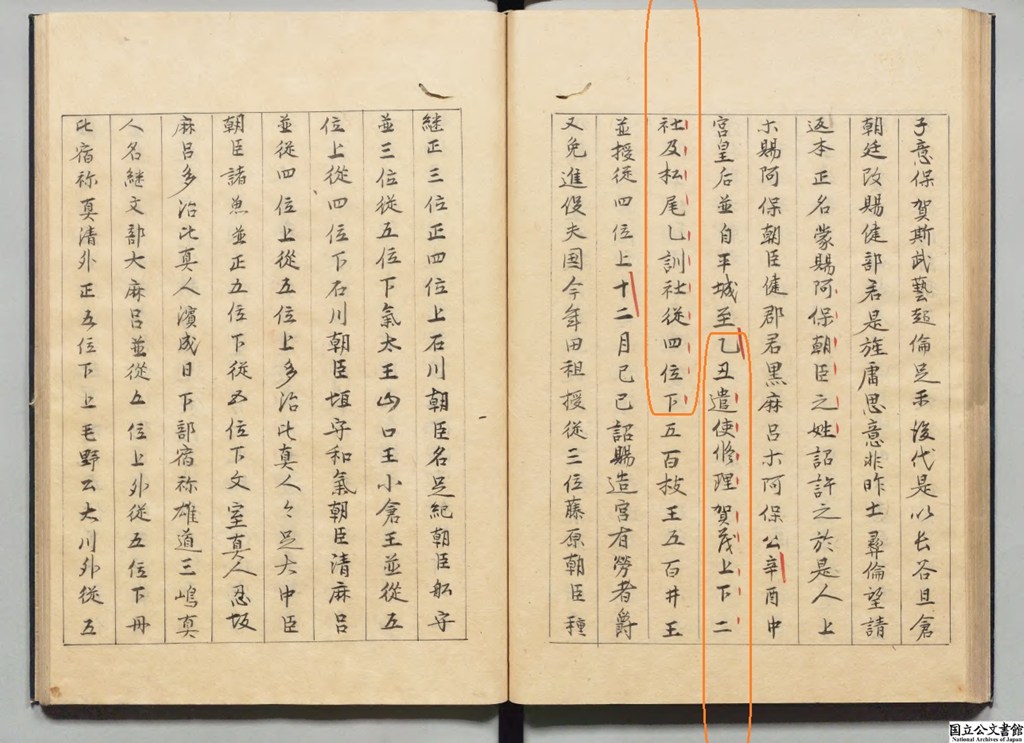 子意保賀斯武藝超倫足示後代是以長谷旦倉
朝廷改賜健部君是旌庸思意非昨土彝倫望請
返本正名蒙賜阿保朝臣之姓詔許之於是人上
ホ賜阿保朝臣健郡君黒麻呂ホ阿保公辛酉中
宮皇后並自平城至乙丑遣使修理賀茂上下二
社及松尾乙訓社従四位下五百枝王五百井王
並授従四位上十二月己巳詔賜造宮有勞者爵
又免進役夫国今年田租授従三位藤原朝臣種
継正三位正四位上石川朝臣名足紀朝臣船守
並三位従五位下氣太王山口王小倉王並従五
位上従四位下石川朝臣垣守和氣朝臣清麻呂
並従四位上従五位上多治比真人々足大中臣
朝臣諸魚並正五位下従五位下文室真人忍坂
麻呂多治比真人濱成日下部宿祢雄道三嶋真
人名継文部大麻呂並従五位上外従五位下丹
比宿祢真清外正五位下上毛野公大川外従五
国立公文書館
National Archives of Japan